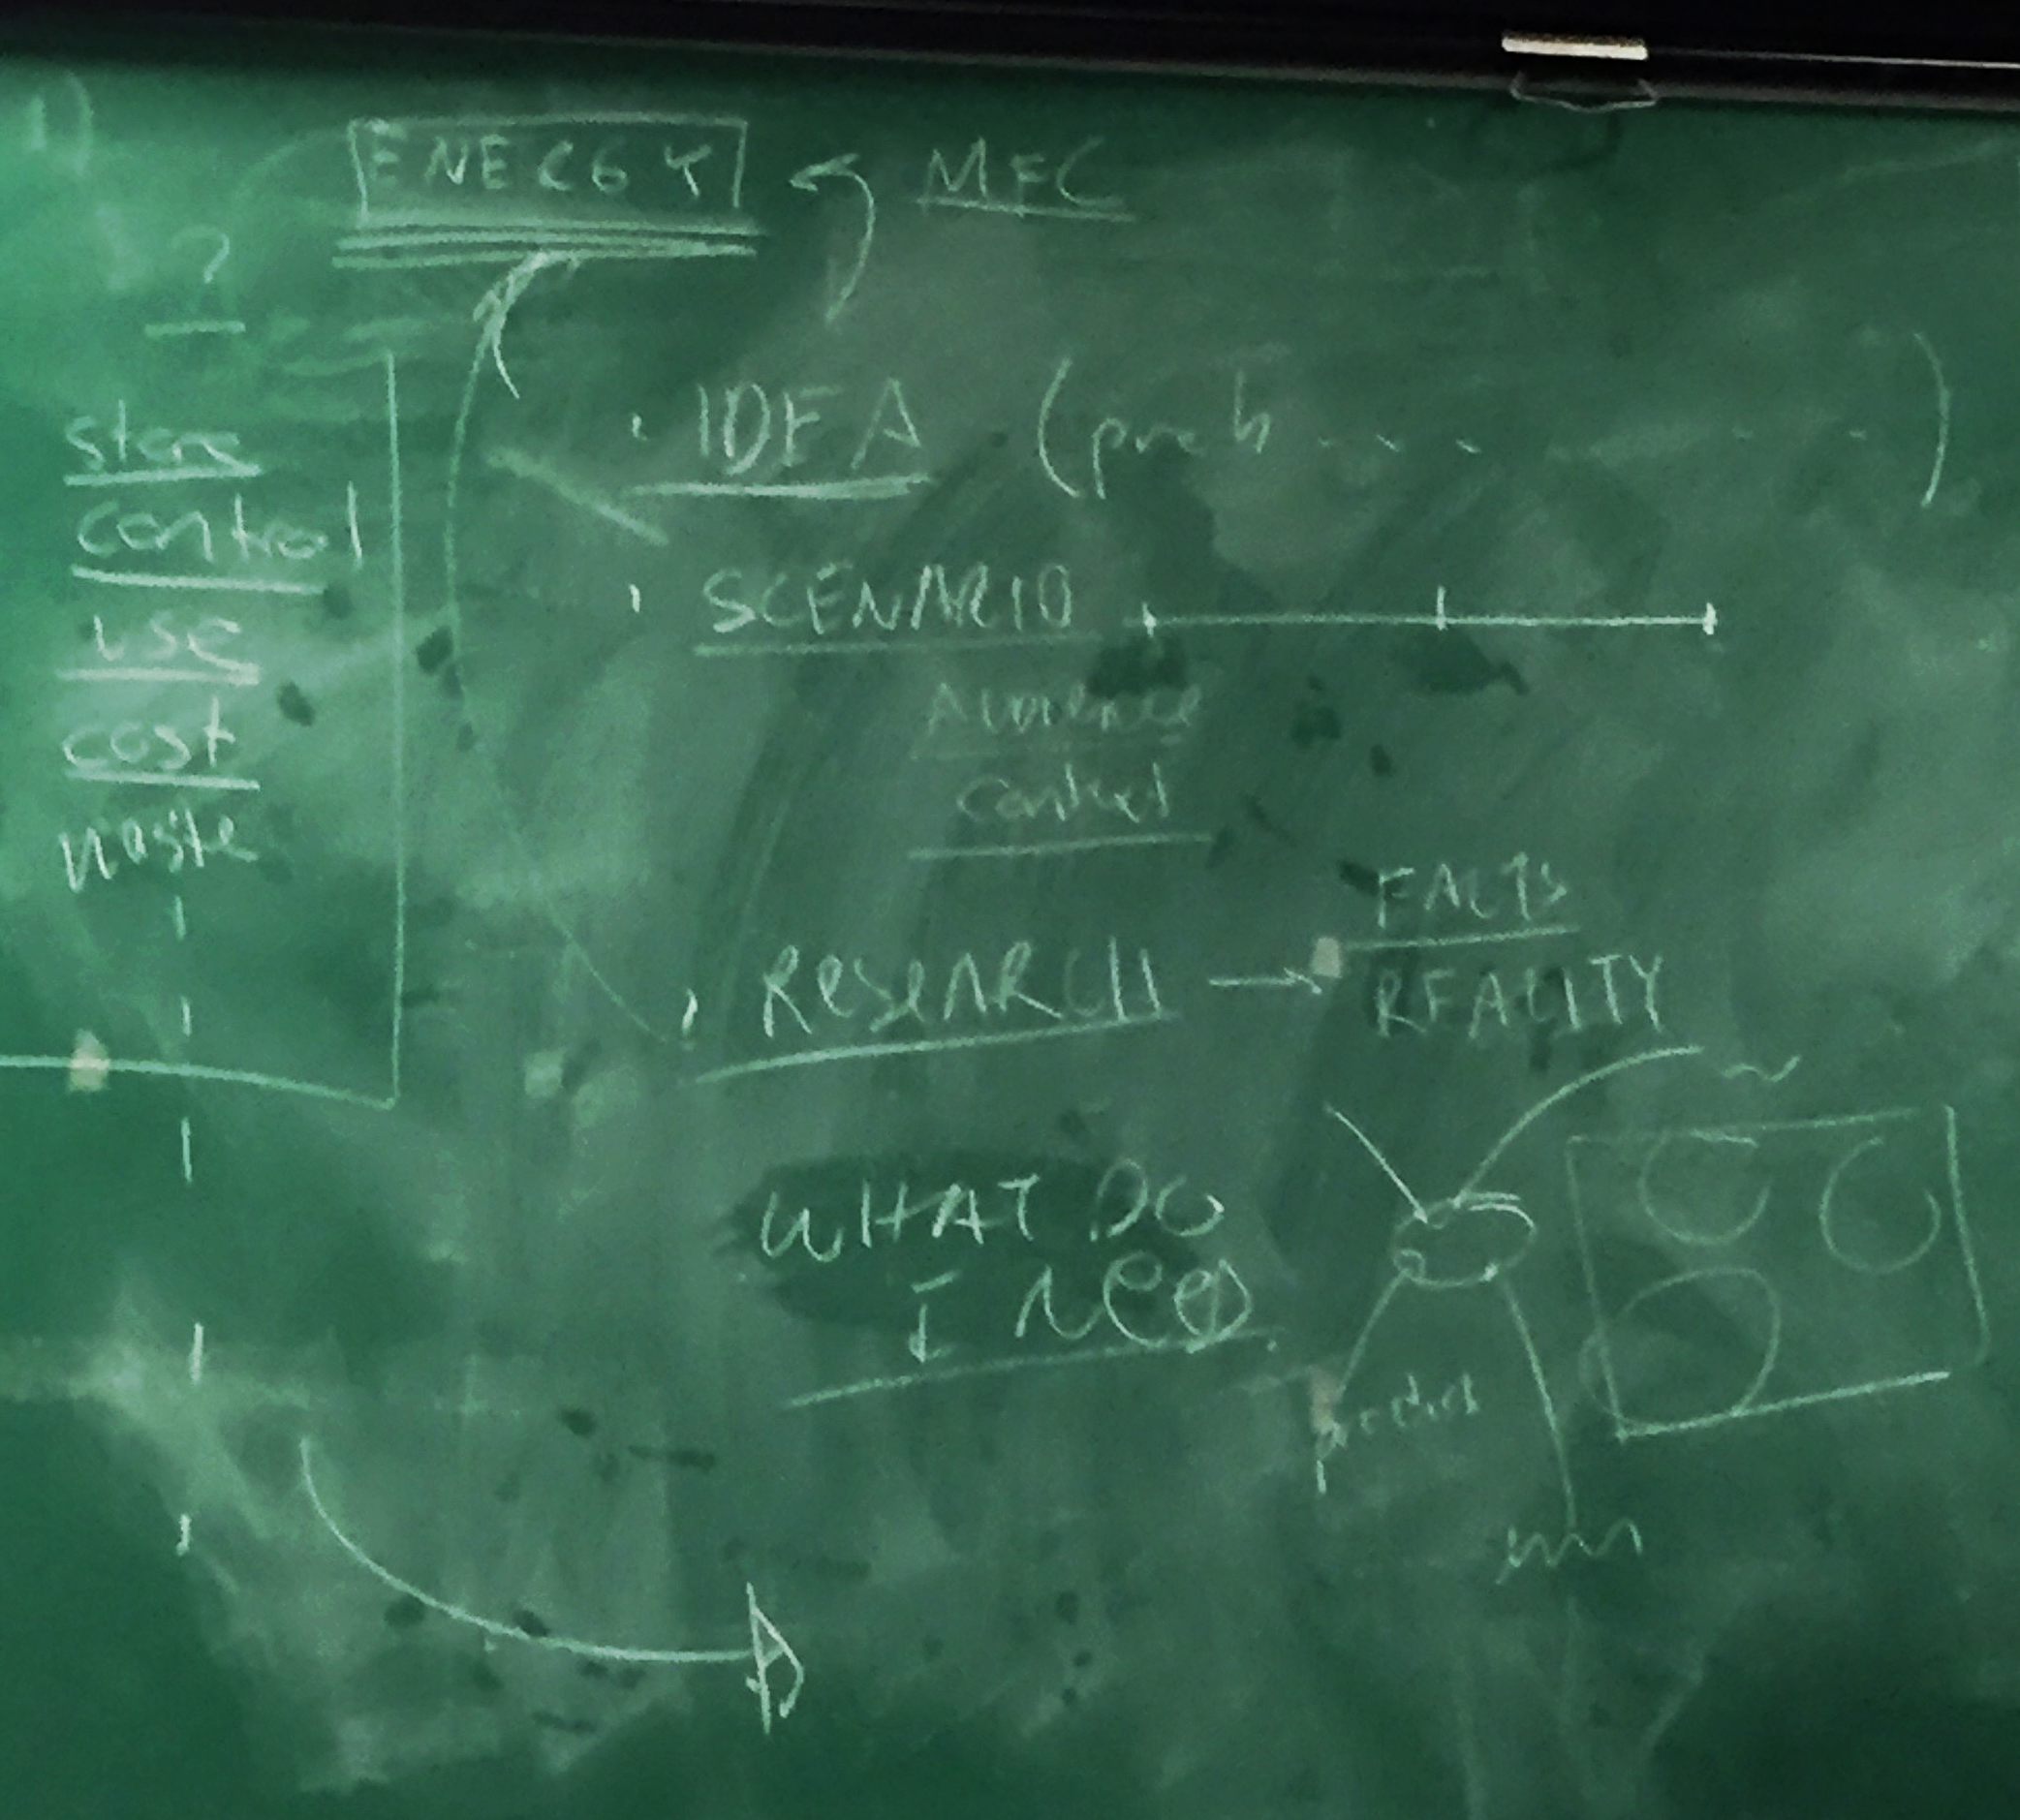 1)
ENERGY
MFC
?
store
control
use
cost
waste
• IDEA (prob.... ..)
• SCENARIO
AUDIENCE
context
• RESEARCH →
FACTS
REALITY
WHAT DO
I NEED
product